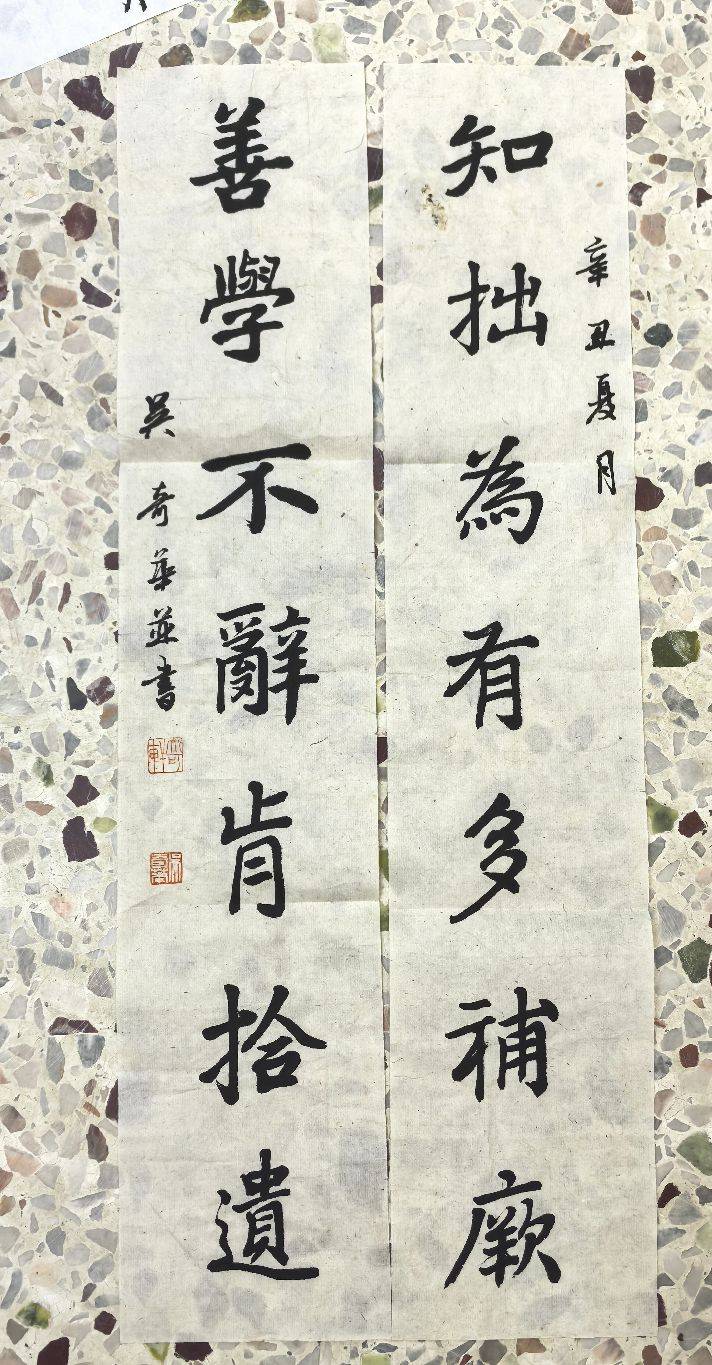 辛丑夏月
知拙為有多補廞
善學不辭肯拾遺
吳奇華並書